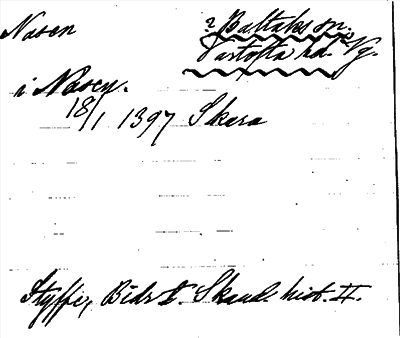 Nasen
? Baltaks sn.
Vartofta hd. Vg.
i Nasen.
18/1 1397 Skara
Styffe, Bidr t. Skand. hist. II.